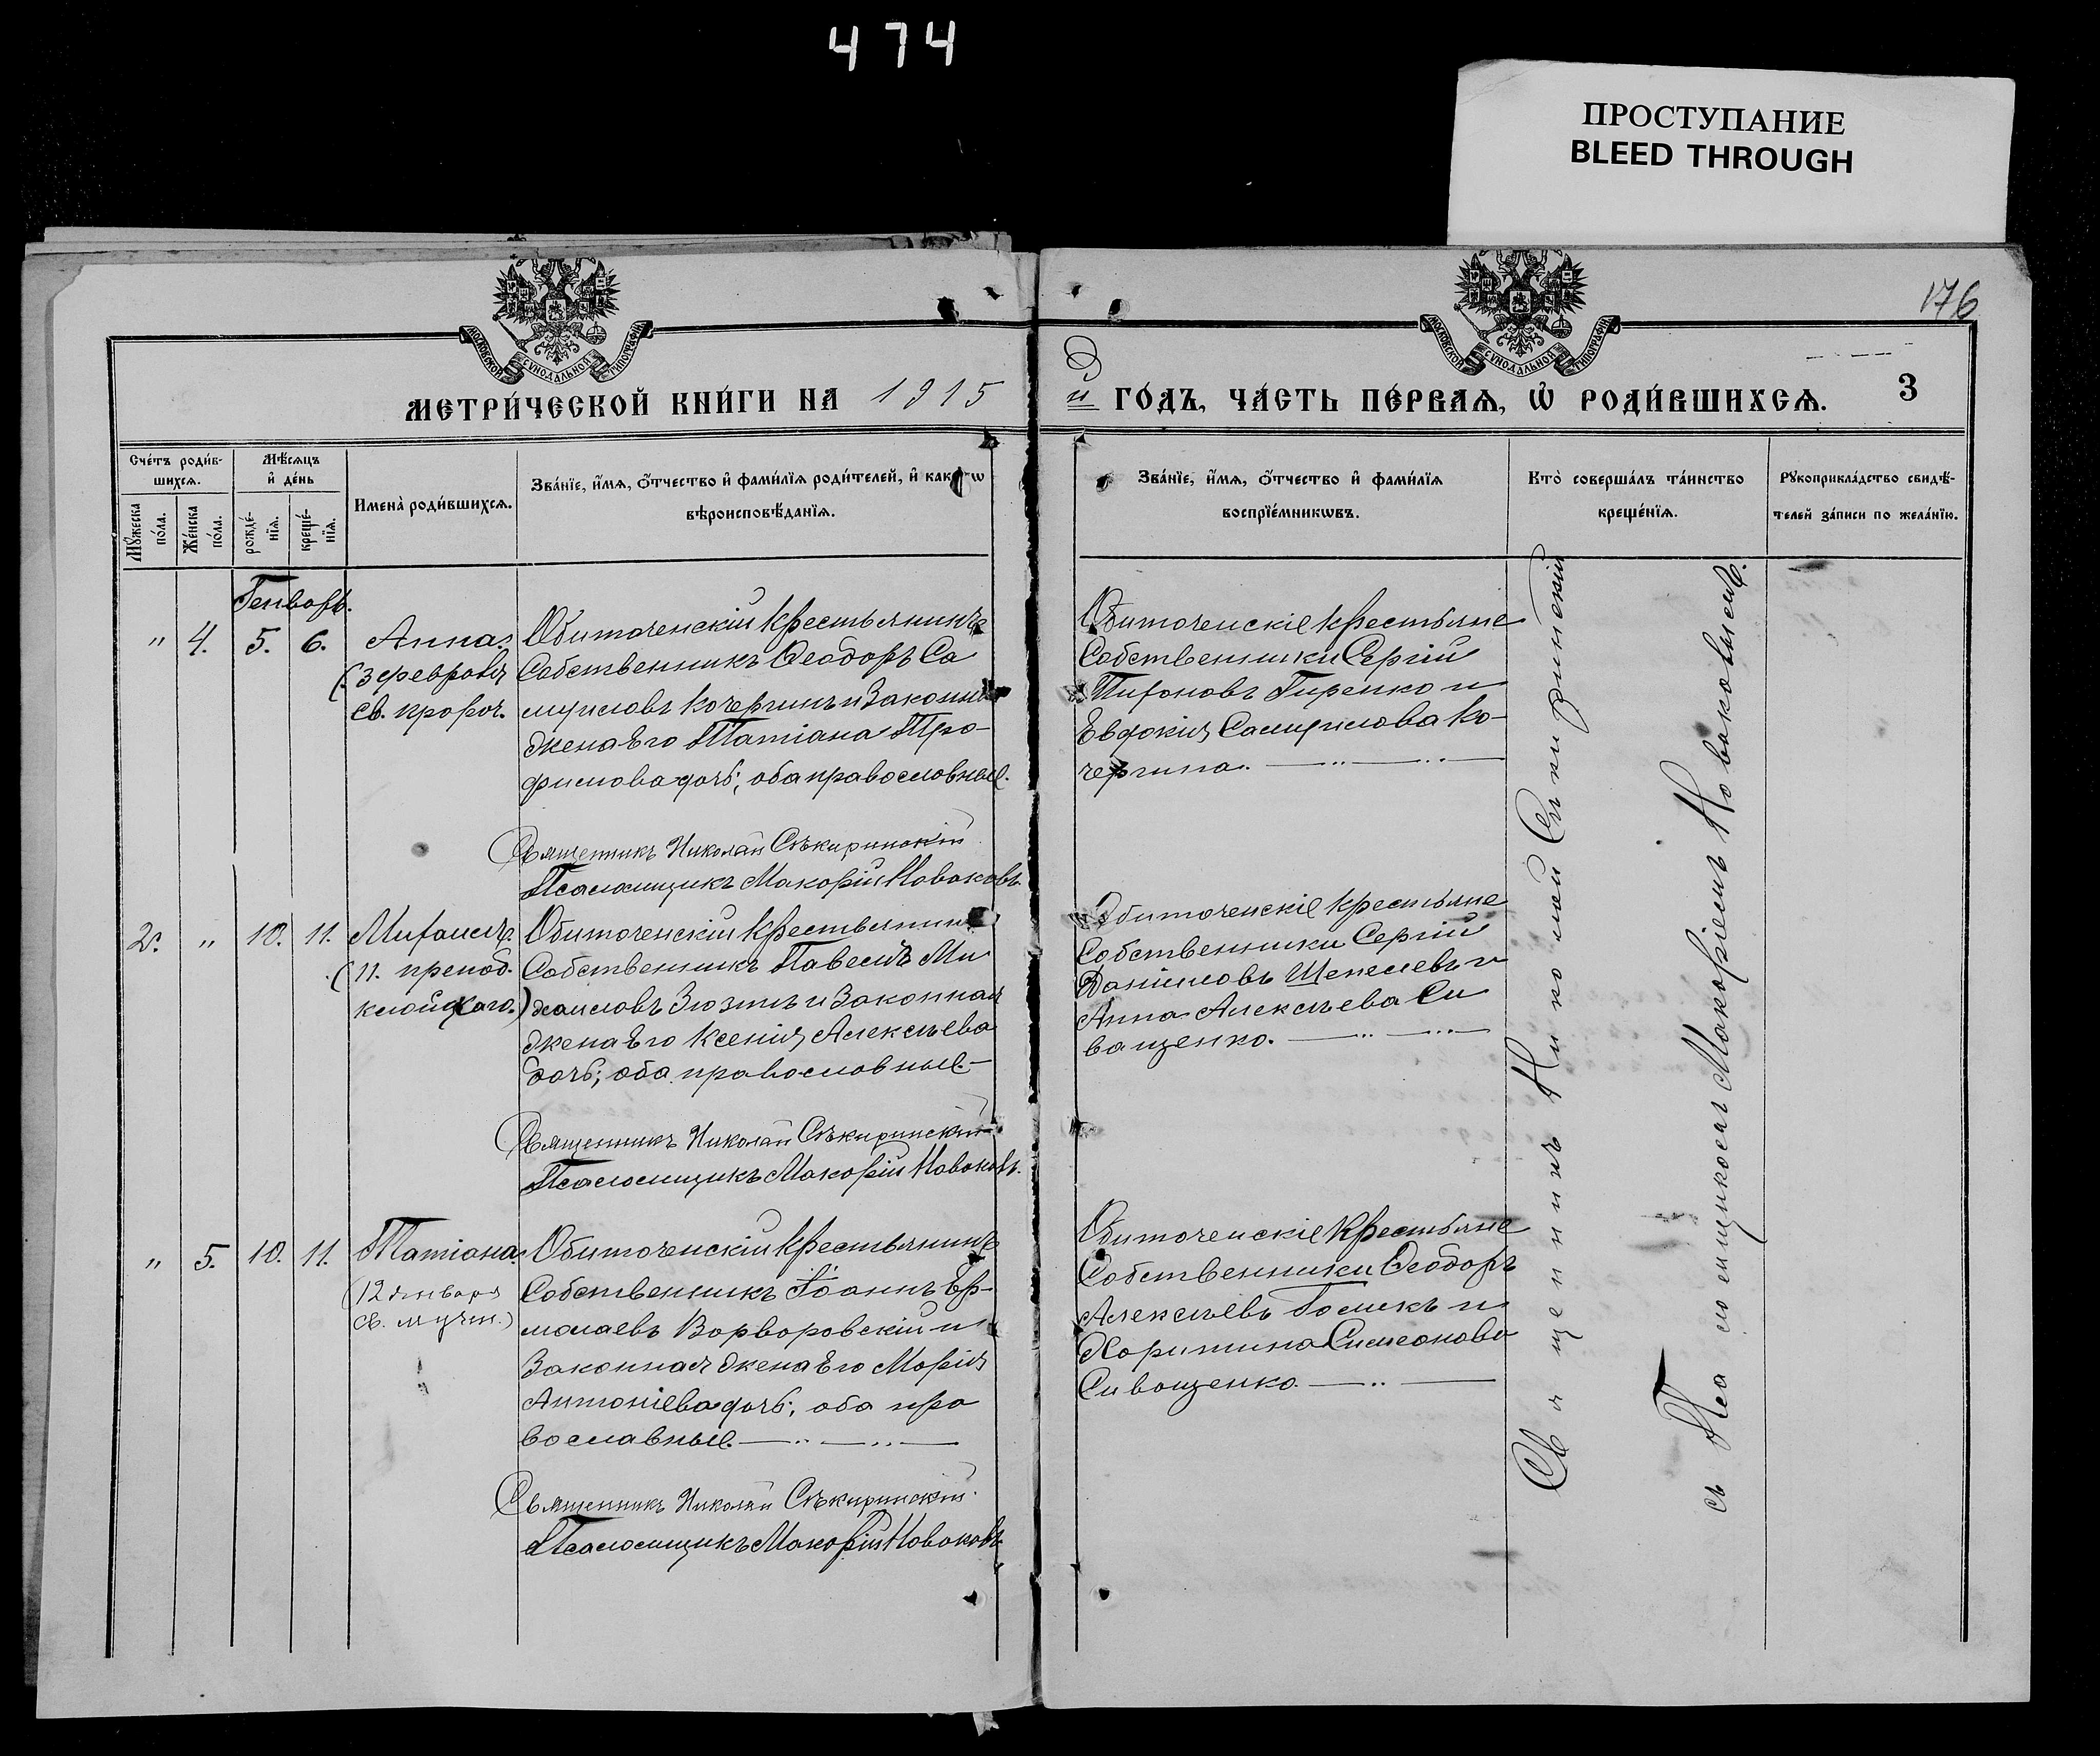 474
ПРОСТУПАНИЕ
BLEED THROUGH
176
МОСКОВСКОЙ СУНОДАЛЬНОЙ ТИПОГРАФІИ
МОСКОВСКОЙ СУНОДАЛЬНОЙ ТИПОГРАФІИ
МЕТРИ́ЧЕСКОЙ КНИ́ГИ НА 1915
й ГО́ДЪ, ЧА́СТЬ ПЕ́РВАѦ, Ѡ҆ РОДИ́ВШИХСѦ. 3
Сче́тъ роди́в-
шихсѧ.
Мꙋ́жеска по́ла.
Же́нска по́ла.
Мѣ́сѧцъ
и҆ де́нь
рожде́-
нїѧ.
креще́-
нїѧ.
Имена̀ роди́вшихсѧ.
Зва́нїе, и҆́мѧ, ѻ҆́тчество и҆ фами́лїѧ роди́телей, и҆ како́гѡ
вѣроисповѣ́данїѧ.
Зва́нїе, и҆́мѧ, ѻ҆́тчество и҆ фами́лїѧ
воспрїе́мникѡвъ.
Кто̀ соверша́лъ та́инство
креще́нїѧ.
Рꙋкоприкла́дство свидѣ́-
телей за́писи по жела́нїю.
Генварь.
" 4. 5. 6. Анна.
(3 февраля
св. пророч.
Обиточенскій крестьянинъ
Собственникъ Ѳеодоръ Са
муиловъ Кочергинъ и Законная
жена Его Татіана Тро-
фимова дочь; оба православные.
Священникъ Николай Сѣкиринскій
Псаломщикъ Макарій Новаковъ
Обиточенскіе крестьяне
Собственники Сергій
Гиренко и
Евдокія Самуилова Ко-
чергина.
2. " 10. 11. Михаилъ.
(11. препод.
клопскаго.)
Обиточенскій крестьянинъ
Собственникъ Павелъ Ми
хаиловъ Зюзинъ и Законная
жена Его Ксенія Алексѣева
дочь; оба православные
Священникъ Николай Сѣкиринскій
Псаломщикъ Макарій Новаковъ.
Обиточенскіе крестьяне
Собственники Сергій
Даніиловъ Щепелевъ и
Анна Алексѣева Си
ващенко.
" 5. 10. 11. Татіана.
(12 января
св. мучен.)
Обиточенскій крестьянинъ
Собственникъ Іоаннъ Ер-
молаевъ Варваровскій и
Законная жена Его Марія
Антоніева дочь; оба пра
вославные.
Священникъ Николай Сѣкиринскій.
Псаломщикъ Макарій Новаковъ
Обиточенскіе крестьяне
Собственники Ѳеодоръ
Алексѣевъ Голикъ и
Харитина Симеонова
Сиващенко.
Священникъ Николай Сѣкиринскій
съ Псаломщикомъ Макаріемъ Новаковымъ.